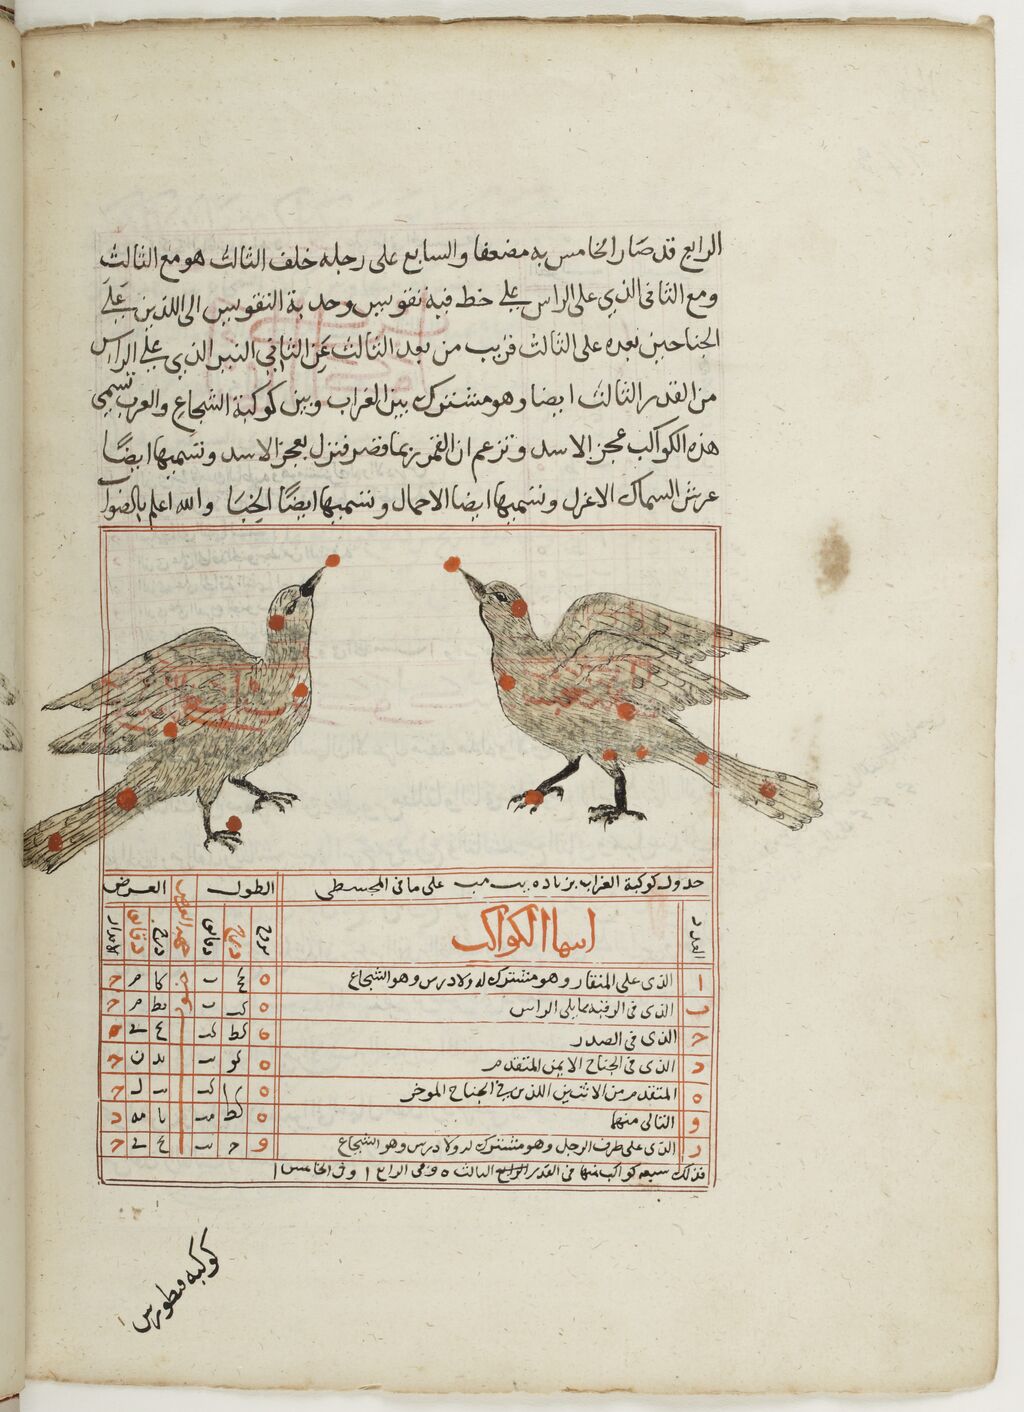 الرابع قد صار الخامس به مضعفا والسابع على رجله خلف الثالث هو مع الثالث
ومع الثانى الذي على الراس على خط فيه تقويس وحدبة التقويس الى اللذين على
الجناحين بعده على الثالث قريب من بعد الثالث عن الثاني النير الذي على الراس
من القدر الثالث ايضا وهو مشترك بين الغراب وبين كوكبة الشجاع والعرب تسمي
هذه الكواكب عجز الاسد وتزعم ان القمر ربما قصر فنزل بعجز الاسد وتسميها ايضًا
عرش السماك الاعزل وتسميها ايضا الاحمال وتسميها ايضًا الخبَا والله اعلم بالصواب
جدول كوكبة الغراب بزيادة يب مب على ما فى المجسطى الطول جهة العرض العرض
العدد اسما الكواكب بروج درج دقائق درج دقائق الاقدار
ا الذى على المنقار وهو مشترك له ولادرس وهو الشجاع ه كا م ح
ب الذى فى الرقبة مما يلى الراس ه يط م ح
ح الذى فى الصدر ه كط
د الذى فى الجناح الايمن المتقدم ه كو يد ن ح
ه المتقدم من الاثنين اللذين فى الجناح الموخر ه ل ح
و التالى منهما ه كط يا مه د
ر الذى على طرف الرجل وهو مشترك له ولادرس وهو الشجاع و ح
فذلك سبعة كواكب منها فى القدر الثالث ه وفى الرابع ا وفى الخامس ا
كوكبة قنطورس